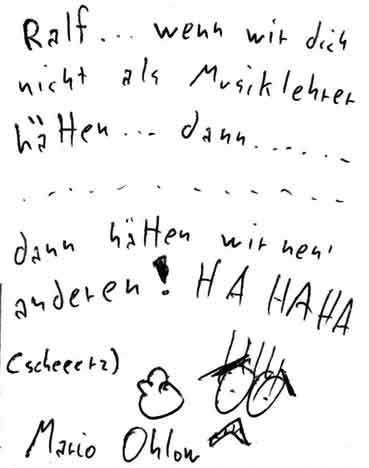 Ralf... wenn wir dich
nicht als Musiklehrer
hätten... dann.......
. . - . - - . - - - - -
dann hätten wir nen'
anderen! HA HAHA
(scheeerz)
Mario Ohlow